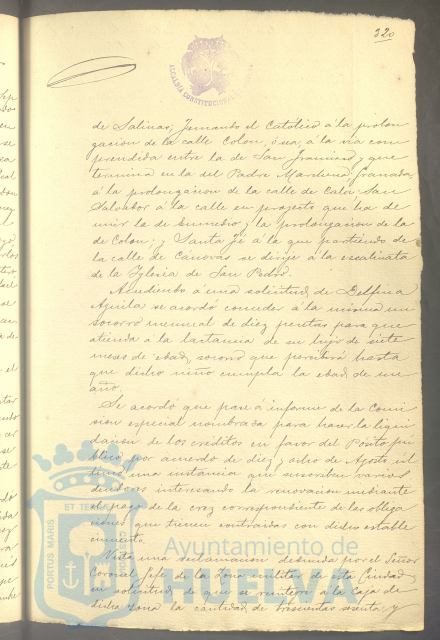 320
ALCALDIA CONSTITUCIONAL
de Salinas; Fernando el Catolico á la prolon
gacion de la calle Colon, ó sea, á la via com
prendida entre la de San Francisco y que
termina en la del Padre Marchena; Granada,
á la prolongacion de la calle de Colon San
Salvador á la calle en proyecto que ha de
unir la de y la prolongacion de la
de Colon; y Santa Fé á la que partiendo de
la calle de Cánovas se dirije á la escalinata
de la Iglesia de San Pedro.
Accediendo á una solicitud de Delfina
Aguila se acordó conceder á la misma un
socorro mensual de diez pesetas para que
atienda á la lactancia de su hijo de siete
meses de edad, socorro que percibirá hasta
que dicho niño cumpla la edad de un
año.
Se acordó que pase á informe de la Comi
sion especial nombrada para hacer la liqui
dacion de los créditos en favor del Pósito pú
blico por acuerdo de diez y ocho de Agosto úl
timo una instancia que suscriben varios
deudores interesando la renovacion mediante
el pago de la crez correspondiente de las obliga
ciones que tienen contraidas con dicho estable
cimiento.
Vista una reclamacion deducida por el Señor
Coronel Jefe de la Zona militar de esta Ciudad
en solicitud de que se reintegre á la caja de
dicha zona la cantidad de trescientas sesenta y
PORTUS MARIS ET TERRAE CUSTODIA
Ayuntamiento de
HUELVA